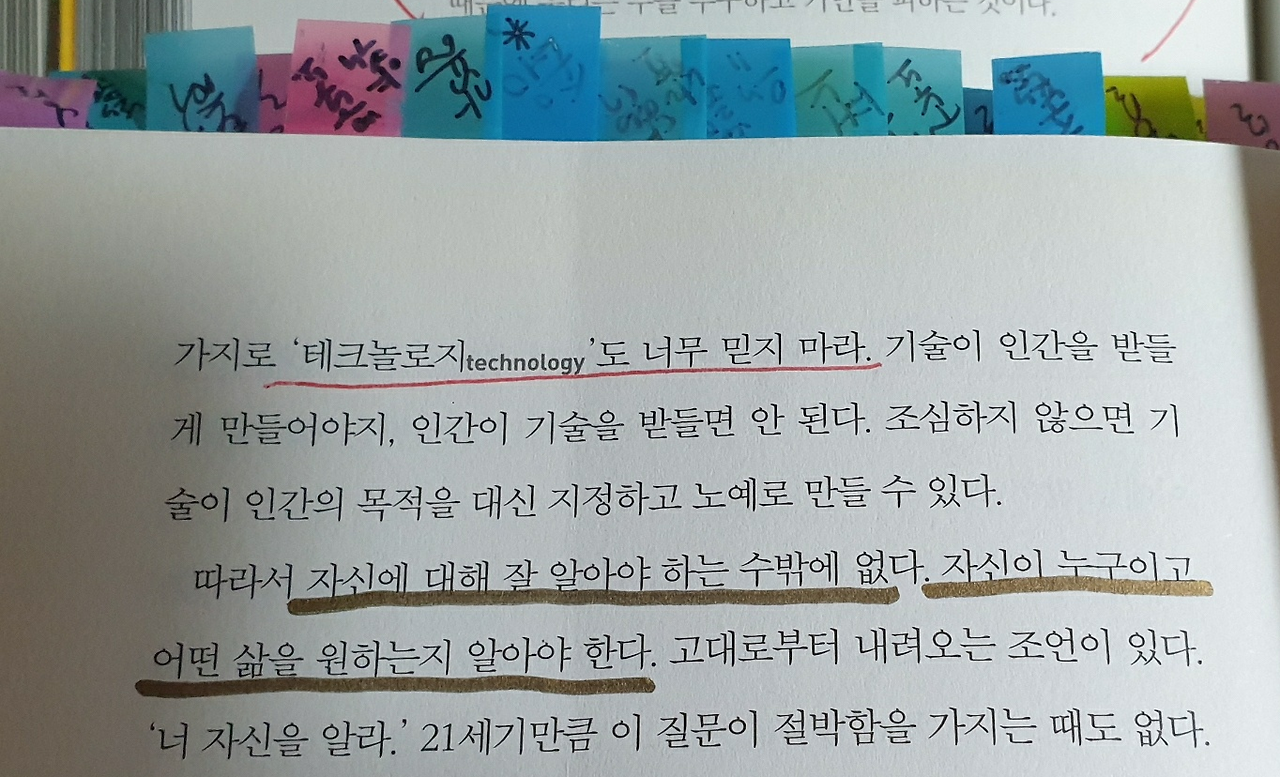 가지로 ‘테크놀로지technology’도 너무 믿지 마라. 기술이 인간을 받들
게 만들어야지, 인간이 기술을 받들면 안 된다. 조심하지 않으면 기
술이 인간의 목적을 대신 지정하고 노예로 만들 수 있다.
따라서 자신에 대해 잘 알아야 하는 수밖에 없다. 자신이 누구이고
어떤 삶을 원하는지 알아야 한다. 고대로부터 내려오는 조언이 있다.
‘너 자신을 알라.’ 21세기만큼 이 질문이 절박함을 가지는 때도 없다.